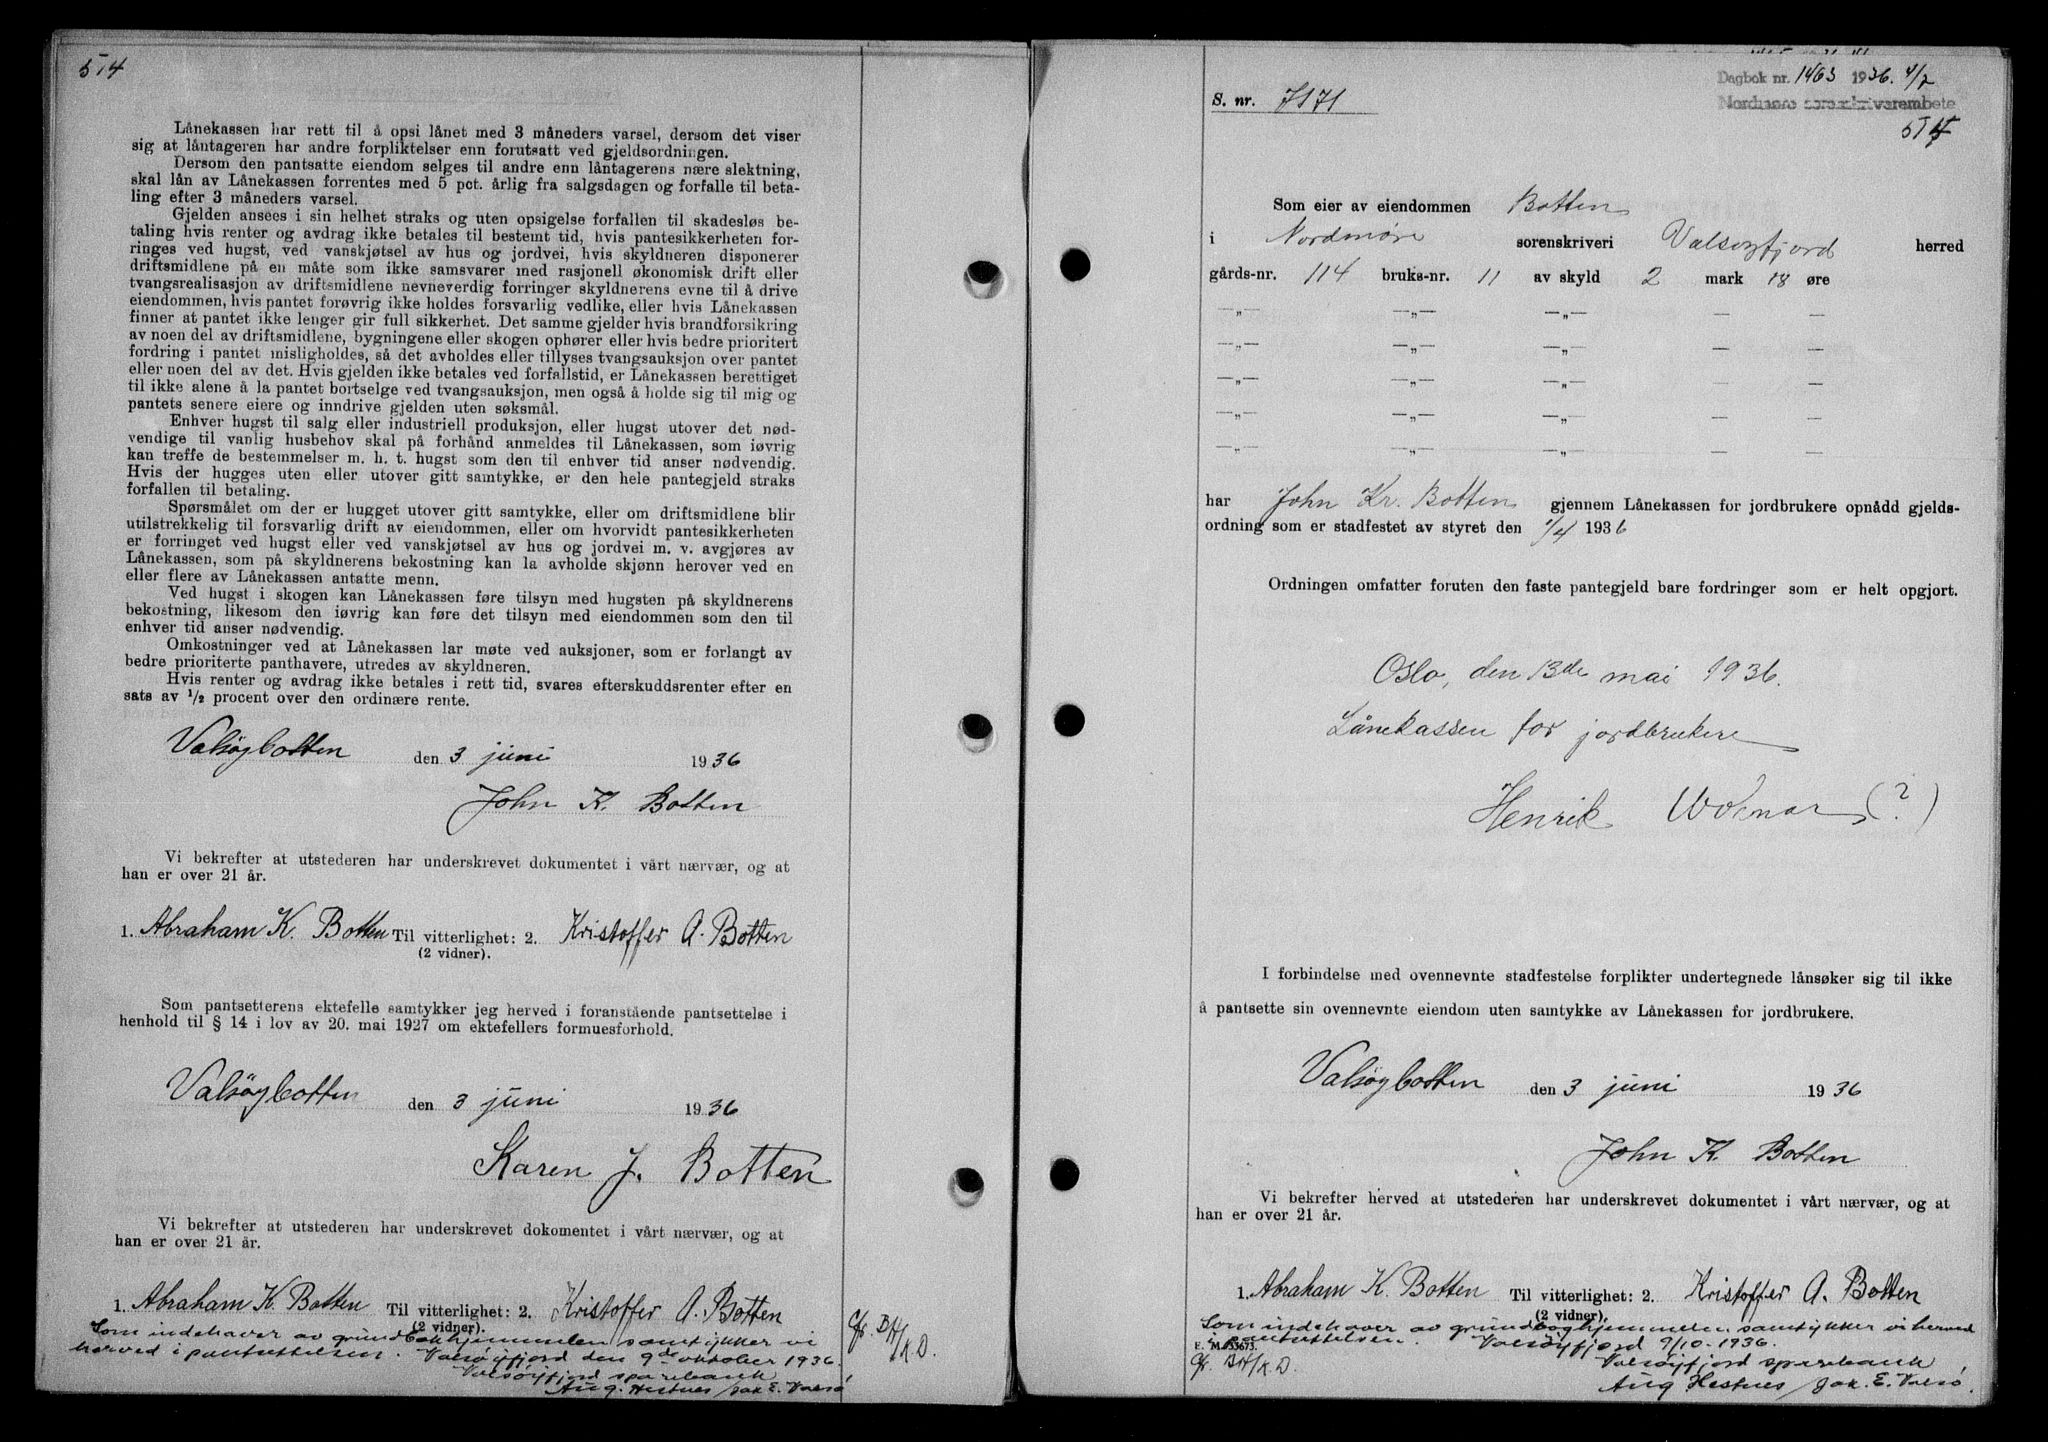 574
Lånekassen har rett til å opsi lånet med 3 måneders varsel, dersom det viser
sig at låntageren har andre forpliktelser enn forutsatt ved gjeldsordningen.
Dersom den pantsatte eiendom selges til andre enn låntagerens nære slektning,
skal lån av Lånekassen forrentes med 5 pct. årlig fra salgsdagen og forfalle til beta-
ling efter 3 måneders varsel.
Gjelden ansees i sin helhet straks og uten opsigelse forfallen til skadesløs be-
taling hvis renter og avdrag ikke betales til bestemt tid, hvis pantesikkerheten for-
ringes ved hugst, ved vanskjøtsel av hus og jordvei, hvis skyldneren disponerer
driftsmidlene på en måte som ikke samsvarer med rasjonell økonomisk drift eller
tvangsrealisasjon av driftsmidlene nevneverdig forringer skyldnerens evne til å drive
eiendommen, hvis pantet forøvrig ikke holdes forsvarlig vedlike, eller hvis Lånekassen
finner at pantet ikke lenger gir full sikkerhet. Det samme gjelder hvis brandforsikring
av noen del av driftsmidlene, bygningene eller skogen ophører eller hvis bedre prioritert
fordring i pantet misligholdes, så det avholdes eller tillyses tvangsauksjon over pantet
eller noen del av det. Hvis gjelden ikke betales ved forfallstid, er Lånekassen berettiget
til ikke alene å la pantet bortselge ved tvangsauksjon, men også å holde sig til mig og
pantets senere eiere og inndrive gjelden uten søksmål.
Enhver hugst til salg eller industriell produksjon, eller hugst utover det nød-
vendige til vanlig husbehov skal på forhånd anmeldes til Lånekassen, som iøvrig
kan treffe de bestemmelser m. h. t. hugst som den til enhver tid anser nødvendig.
Hvis der hugges uten eller utover gitt samtykke, er den hele pantegjeld straks
forfallen til betaling.
Spørsmålet om der er hugget utover gitt samtykke, eller om driftsmidlene blir
utilstrekkelig til forsvarlig drift av eiendommen, eller om hvorvidt pantesikkerheten
er forringet ved hugst eller ved vanskjøtsel av hus og jordvei m. v. avgjøres av
Lånekassen, som på skyldnerens bekostning kan la avholde skjønn herover ved en
eller flere av Lånekassen antatte menn.
Ved hugst i skogen kan Lånekassen føre tilsyn med hugsten på skyldnerens
bekostning, likesom den iøvrig kan føre det tilsyn med eiendommen som den til
enhver tid anser nødvendig.
Omkostninger ved at Lånekassen lar møte ved auksjoner, som er forlangt av
bedre prioriterte panthavere, utredes av skyldneren.
Hvis renter og avdrag ikke betales i rett tid, svares efterskuddsrenter efter en
sats av 1/2 procent over den ordinære rente.
Valsøybotten den 3 juni 1936
John K. Botten
Vi bekrefter at utstederen har underskrevet dokumentet i vårt nærvær, og at
han er over 21 år.
1. Abraham K. Botten Til vitterlighet: 2. Kristoffer A. Botten
(2 vidner).
Som pantsetterens ektefelle samtykker jeg herved i foranstående pantsettelse i
henhold til § 14 i lov av 20. mai 1927 om ektefellers formuesforhold.
Valsöybotten den 3 juni 1936
Karen J. Botten
Vi bekrefter at utstederen har underskrevet dokomentet i vårt nærvær, og at
han er over 21 år.
1. Abraham K. Botten Til vitterlighet: 2. Kristoffer A. Botten
(2 vidner).
Som indehaver av grundbokhjemmelen samtykker vi
herved i pantsettelsen. Valsøyfjord den 9de oktober 1936.
Valsøyfjord sparebank
Aug. Hestnes Jak E. Valsø
Dagbok nr. 1463 1936. 4/7
Nordmøre sorenskriverembete
S. nr. 7171
574
Som eier av eiendommen Botten
i Nordmøre sorenskriveri Valsøyfjord herred
gårds-nr. 114 bruks-nr. 11 av skyld 2 mark 18 øre
—„— —„— —„— — —
—„— —„— —„— — —
—„— —„— —„— — —
—„— —„— —„— — —
—„— —„— —„— — —
har John Kr. Botten gjennem Lånekassen for jordbrukere opnådd gjelds-
ordning som er stadfestet av styret den 1/4 1936
Ordningen omfatter foruten den faste pantegjeld bare fordringer som er helt opgjort.
Oslo, den 13de mai 1936.
Lånekassen for jordbrukere
Henrik (?)
I forbindelse med ovennevnte stadfestelse forplikter undertegnede lånsøker sig til ikke
å pantsette sin ovennevnte eiendom uten samtykke av Lånekassen for jordbrukere.
Valsøybotten den 3 juni 1936
John K. Botten
Vi bekrefter herved at utstederen har underskrevet dokumentet i vårt nærvær, og at
han er over 21 år.
1. Abraham K. Botten Til vitterlighet: 2. Kristoffer A. Botten
(2 vidner).
Som indehaver av grundboghjemmelen samtykker vi herved
i pantsettelsen. Valsøyfjord 9/10. 1936.
Valsøyfjord sparebank
Aug Hestnes Jak E. Valsø.